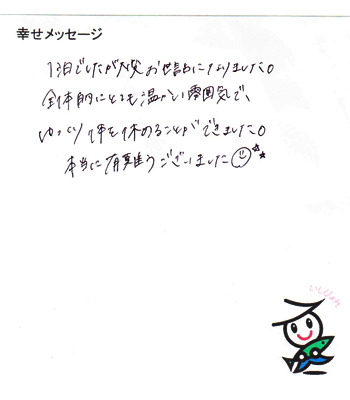 幸せメッセージ
1泊でしたが大変お世話になりました。
全体的にとても温かい雰囲気で、
ゆっくり体を休めることができました。
本当に有難うございました